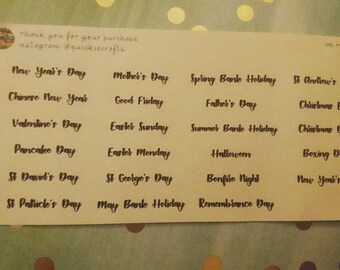 Thank you for your purchase
Instagram: @quickiecrafts
New Year's Day
Chinese New Year
Valentine's Day
Pancake Day
St David's Day
St Patrick's Day
Mother's Day
Good Friday
Easter Sunday
Easter Monday
St George's Day
May Bank Holiday
Spring Bank Holiday
Father's Day
Summer Bank Holiday
Halloween
Bonfire Night
Remembrance Day
St Andrew's
Christmas
Christmas
Boxing D
New Year's